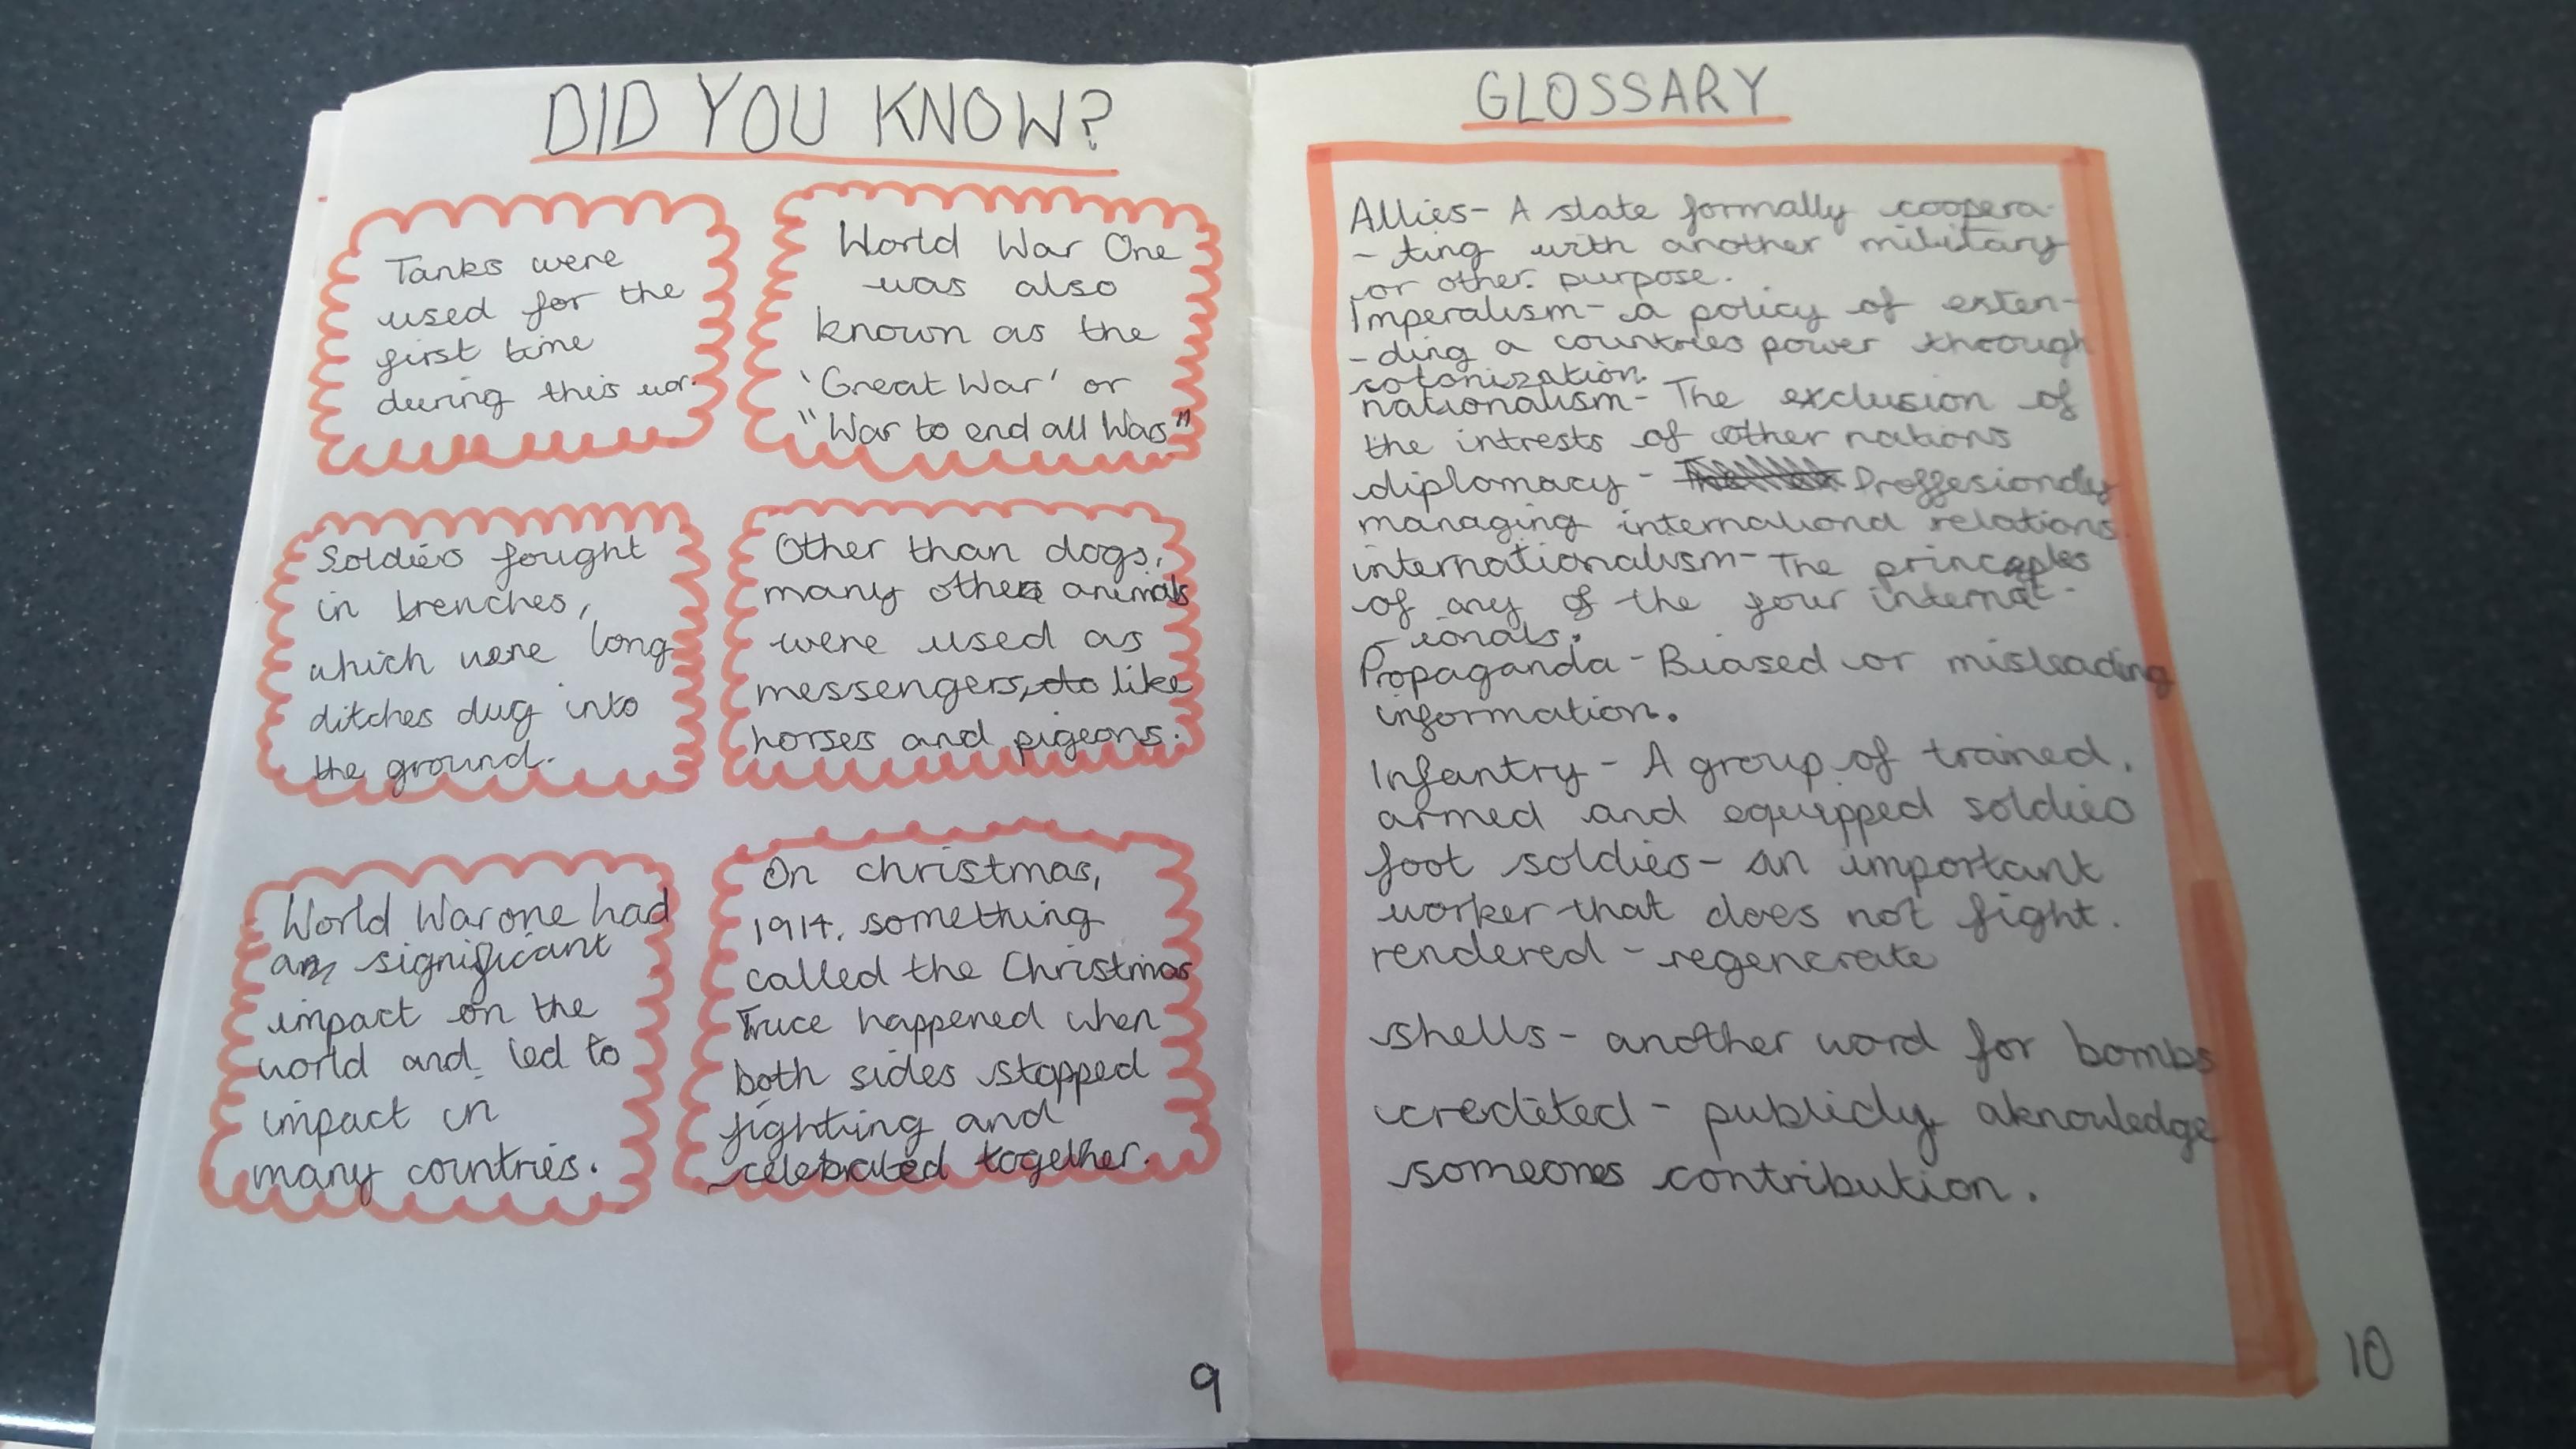 DID YOU KNOW?
Tanks were
used for the
first time
during this war.
World War One
was also
known as the
'Great War' or
"War to end all Wars"
Soldiers fought
in trenches,
which were long
ditches dug into
the ground.
Other than dogs,
many other animals
were used as
messengers, like
horses and pigeons.
World War one had
an significant
impact on the
world and led to
impact in
many countries.
On christmas,
1914, something
called the Christmas
Truce happened when
both sides stopped
fighting and
celebrated together.
9
GLOSSARY
Allies- A state formally coopera-
-ting with another military
or other purpose.
Imperalism- a policy of exten-
-ding a countries power through
colonization.
nationalism- The exclusion of
the intrests of other nations
diplomacy - Proffesionally
managing international relations
internationalism- The principles
of any of the four internat-
-ionals.
Propaganda - Biased or misleading
information.
Infantry - A group of trained,
armed and equipped soldies
foot soldies- an important
worker that does not fight.
rendered - regenerate
shells- another word for bombs
credeted - publicly aknowledge
someones contribution.
10